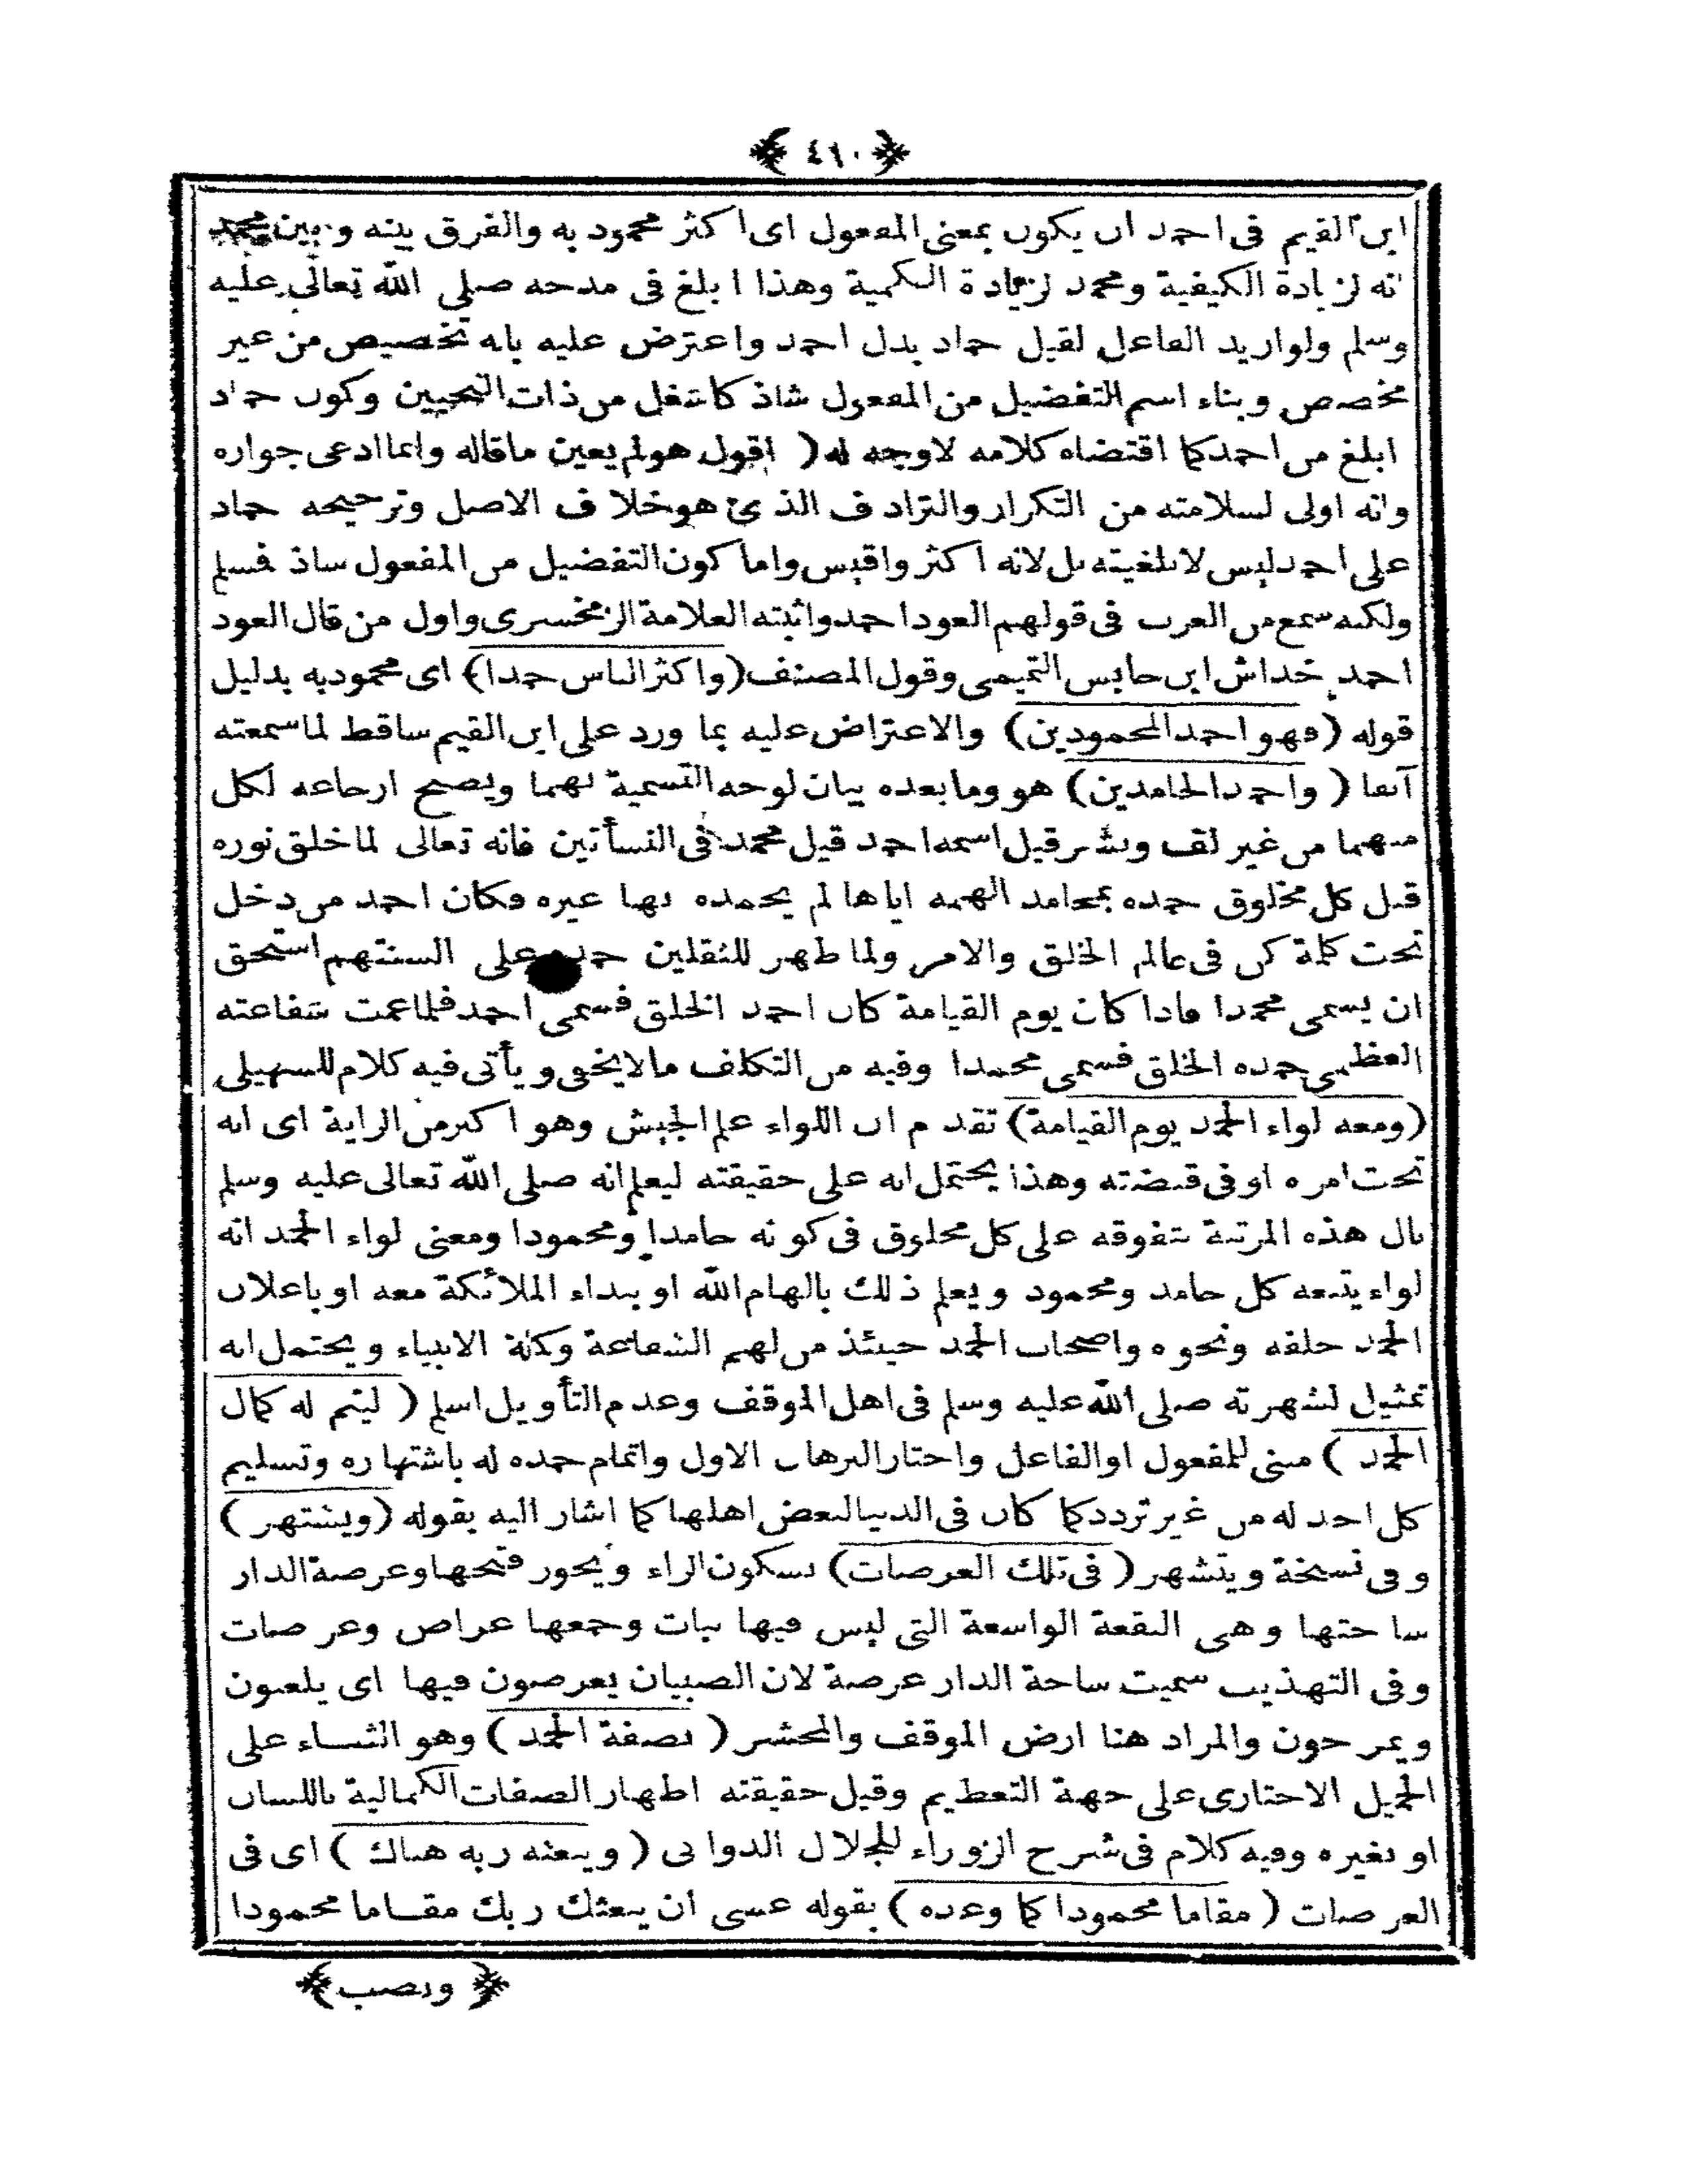 ﴿ ٤٦٠ ﴾
ابن القيم فى احمد ان يكون بمعنى المفعول اى اكثر محمود به والفرق بينه وبين محمد
انه لزيادة الكيفية ومحمد لزيادة الكمية وهذا ابلغ فى مدحه صلى الله تعالى عليه
وسلم ولو اريد الفاعل لقيل حماد بدل احمد واعترض عليه بانه تخصيص من غير
مخصص وبناء اسم التفضيل من المفعول شاذ كاشغل من ذات النحيين وكون حماد
ابلغ من احمد كما اقتضاه كلامه لاوجه له ( اقول هو لم يعين ماقاله وانما ادعى جوازه
وانه اولى لسلامته من التكرار والترادف الذى هو خلاف الاصل وترجيحه حماد
على احمد ليس لابلغيته بل لانه اكثر واقيس واما كون التفضيل من المفعول شاذ فسلم
ولكنه سمع من العرب فى قولهم العود احمد واثبته العلامة الزمخشرى واول من قال العود
احمد خداش ابن حابس التميمى وقول المصنف (واكثر الناس حمدا) اى محمودية بدليل
قوله (فهو احمد المحمودين) والاعتراض عليه بما ورد على ابن القيم ساقط لما سمعته
آنفا ( واحمد الحامدين) هو وما بعده بيان لوجه التسمية بهما ويصح ارجاعه لكل
منهما من غير لف ونشر قيل اسمه احمد قبل محمد فى النشأتين فانه تعالى لما خلق نوره
قبل كل مخلوق حمده بمحامد الهمه اياها لم يحمده بها غيره فكان احمد من دخل
تحت كلمة كن فى عالم الخلق والامر ولما ظهر للثقلين حمده على السنتهم استحق
ان يسمى محمدا فاذا كان يوم القيامة كان احمد الخلق فسمى احمد فلما عمت شفاعته
العظمى حمده الخلق فسمى محمدا وفيه من التكلف مالا يخفى ويأتى فيه كلام للسهيلى
(ومعه لواء الحمد يوم القيامة) تقدم ان اللواء علم الجيش وهو اكبر من الراية اى انه
تحت امره او فى قبضته وهذا يحتمل انه على حقيقته ليعلم انه صلى الله تعالى عليه وسلم
نال هذه المرتبة بتفوقه على كل مخلوق فى كونه حامدا ومحمودا ومعنى لواء الحمد انه
لواء يتبعه كل حامد ومحمود ويعلم ذلك بالهام الله او بنداء الملائكة معه او باعلان
الحمد خلفه ونحوه واصحاب الحمد حينئذ من لهم الشفاعة وكبة الانبياء ويحتمل انه
تمثيل لشهرته صلى الله عليه وسلم فى اهل الموقف وعدم التأويل اسلم ( ليتم له كمال
الحمد ) مبنى للمفعول او الفاعل واختار البرهان الاول واتمام حمده له باشتهاره وتسليم
كل احد له من غير تردد كما كان فى الدنيا لبعض اهلها كما اشار اليه بقوله (ويشتهر )
وفى نسخة ويتشهر ( فى تلك العرصات) بسكون الراء ويجوز فتحها وعرصة الدار
ساحتها وهى البقعة الواسعة التى ليس فيها نبات وجمعها عراص وعرصات
وفى التهذيب سميت ساحة الدار عرصة لان الصبيان يعرصون فيها اى يلعبون
ويمرحون والمراد هنا ارض الموقف والمحشر ( بصفة الحمد ) وهو الثناء على
الجميل الاختيارى على جهة التعظيم وقيل حقيقته اظهار الصفات الكمالية باللسان
او بغيره وفيه كلام فى شرح الزوراء للجلال الدوانى ( ويبعثه ربه هناك ) اى فى
العرصات ( مقاما محمودا كما وعده ) بقوله عسى ان يبعثك ربك مقاما محمودا
﴿ ونصب ﴾